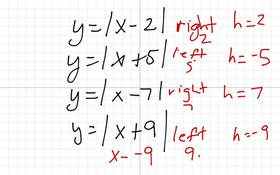 y=|x-2| right 2 h=2
y=|x+5| left 5 h=-5
y=|x-7| right 7 h=7
y=|x+9| left 9. h=-9
x--9